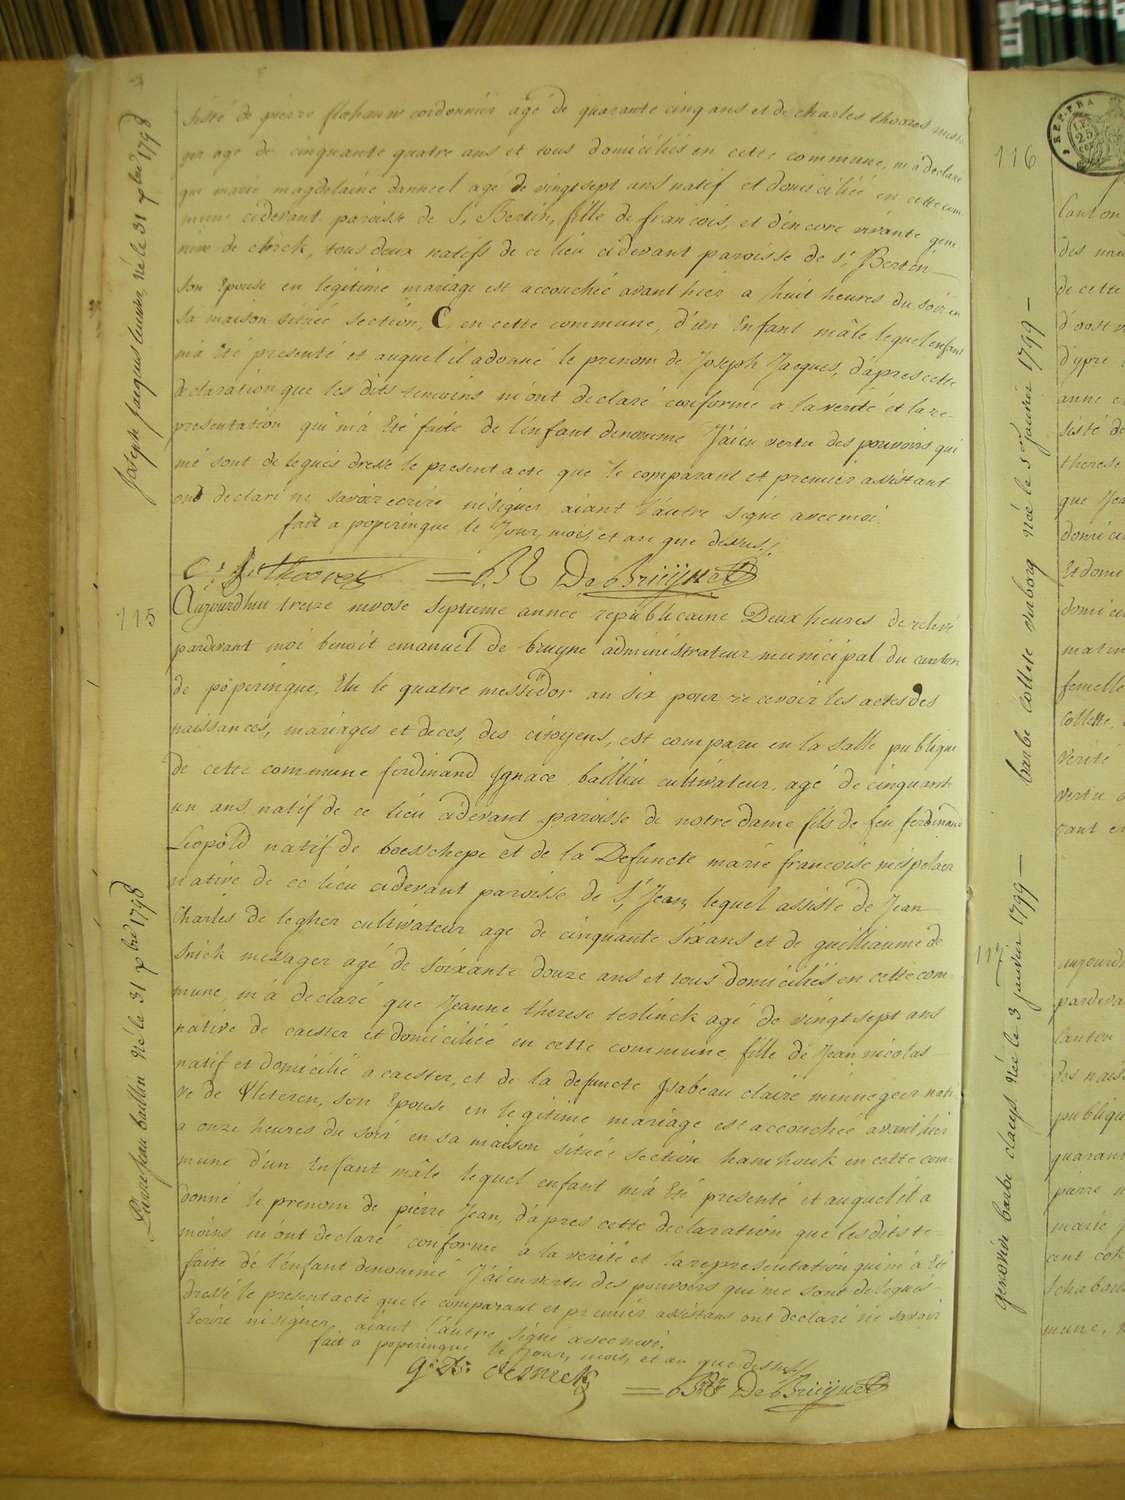 sisté de pierre flahauw cordonnier agé de quarante cinq ans et de charles thooren
ger agé de cinquante quatre ans et tous domiciliés en cette commune, m'a déclaré
que marie magdelaine danneel agé de vingtsept ans natif et domiciliéé en cette com
mune cidevant paroisse de St. Bertin, fille de francois, et d'encore vivante
de clerck, tous deux natifs de ce lieu cidevant paroisse de St. Bertin
son Epouse en legitime mariage est accouchée avant hier a huit heures du soir en
sa maison située section, C, en cette commune, d'un Enfant mâle lequel enfant
m'a Eté presenté et auquel il a donné le prenom de Joseph Jacques, d'apres cette
declaration que les dits temoins m'ont declaré conforme a la verité et la re-
presentation qui m'a Eté faite de l'enfant denommé J'ai en vertu des pouvoirs qui
me sont delegués dressé le present acte que le comparant et premier assistant
ont declaré ne savoir ecrire ni signer aiant l'autre signé avec moi.
fait a poperingue le Jour, mois, et an que dessus.
C: J: thooren BE De Bruijne
Joseph Jacques né le 31 xbre 1798
115
Aujourdhui treize nivose septieme année republicaine Deux heures de relevé
pardevant moi benoit emanuel de bruyne administrateur municipal du canton
de poperingue, Elu le quatre messidor an six pour recevoir les actes des
naissances, mariages et deces, des citoyens, est comparu en la salle publique
de cette commune ferdinand Ignace bailliu cultivateur, agé de cinquant
un ans natif de ce lieu cidevant paroisse de notre dame fils de feu ferdinand
Leopold natif de boesschepe et de la Defuncte marie francoise mispelaer
native de ce lieu cidevant paroisse de St. Jean, lequel assisté de Jean
Charles de legher cultivateur agé de cinquante sixans et de guilliaume de
snick messager agé de soixante douze ans et tous domiciliés en cette com-
mune, m'a declaré que Jeanne therese terlinck agé de vingtsept ans
native de caester et domiciliéé en cette commune, fille de Jean nicolas
natif et domicilié a caester, et de la defuncte Isabeau claire minnegeer nati
ve de Vleteren, son Epouse en legitime mariage est accouchéé avant hier
a onze heures du soir en sa maison située section hamhouk en cette com
mune d'un Enfant mâle lequel enfant m'a Eté presenté et auquel il a
donné le prenom de pierre Jean, d'apres cette declaration que les dits te-
moins m'ont declaré conforme a la verité et la representation qui m'a Eté
faite de l'enfant denommé J'ai en vertu des pouvoirs qui me sont delegués
dressé le present acte que le comparant et premier assistans ont declaré ne savoir
Ecrire ni signer, aiant l'autre signé avec moi.
fait a poperingue le Jour, mois, et an que dessus
G: D: desnick BE De Bruijne
Pierre Jean bailliu né le 31 xbre 1798
116
barbe Collete verborg née le 5 janvier 1799
117
genovieve barbe claeys née le 3 janvier 1799
REP. FRA
25
canton
de cette
d'ypre
sisté de
therese
que Jea
domici
Et domi
domici
matin
femelle
Collette,
verité
vertu
aujourd
pardeva
canton
des nais
publiqu
quarant
pierre
marie
mune,